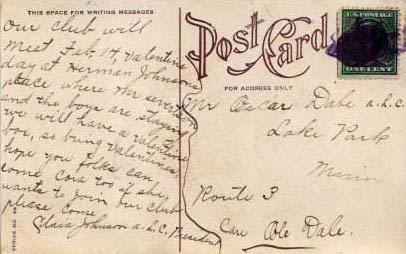 THIS SPACE FOR WRITING MESSAGES
Our Club will
meet Feb 14, Valentine
day at Herman Johnsons
place where Mr
and the boys are staying
we will have a Valentine
box, so bring Valentines,
hope you folks can
come Cora too if she
wants to join our club
please come
Clara Johnson a.L.C. President
Post Card
FOR ADDRESS ONLY
U.S. POSTAGE
ONE CENT
Mr Oscar Dale a.L.C.
Lake Park
Minn
Route 3
Care Ole Dale.